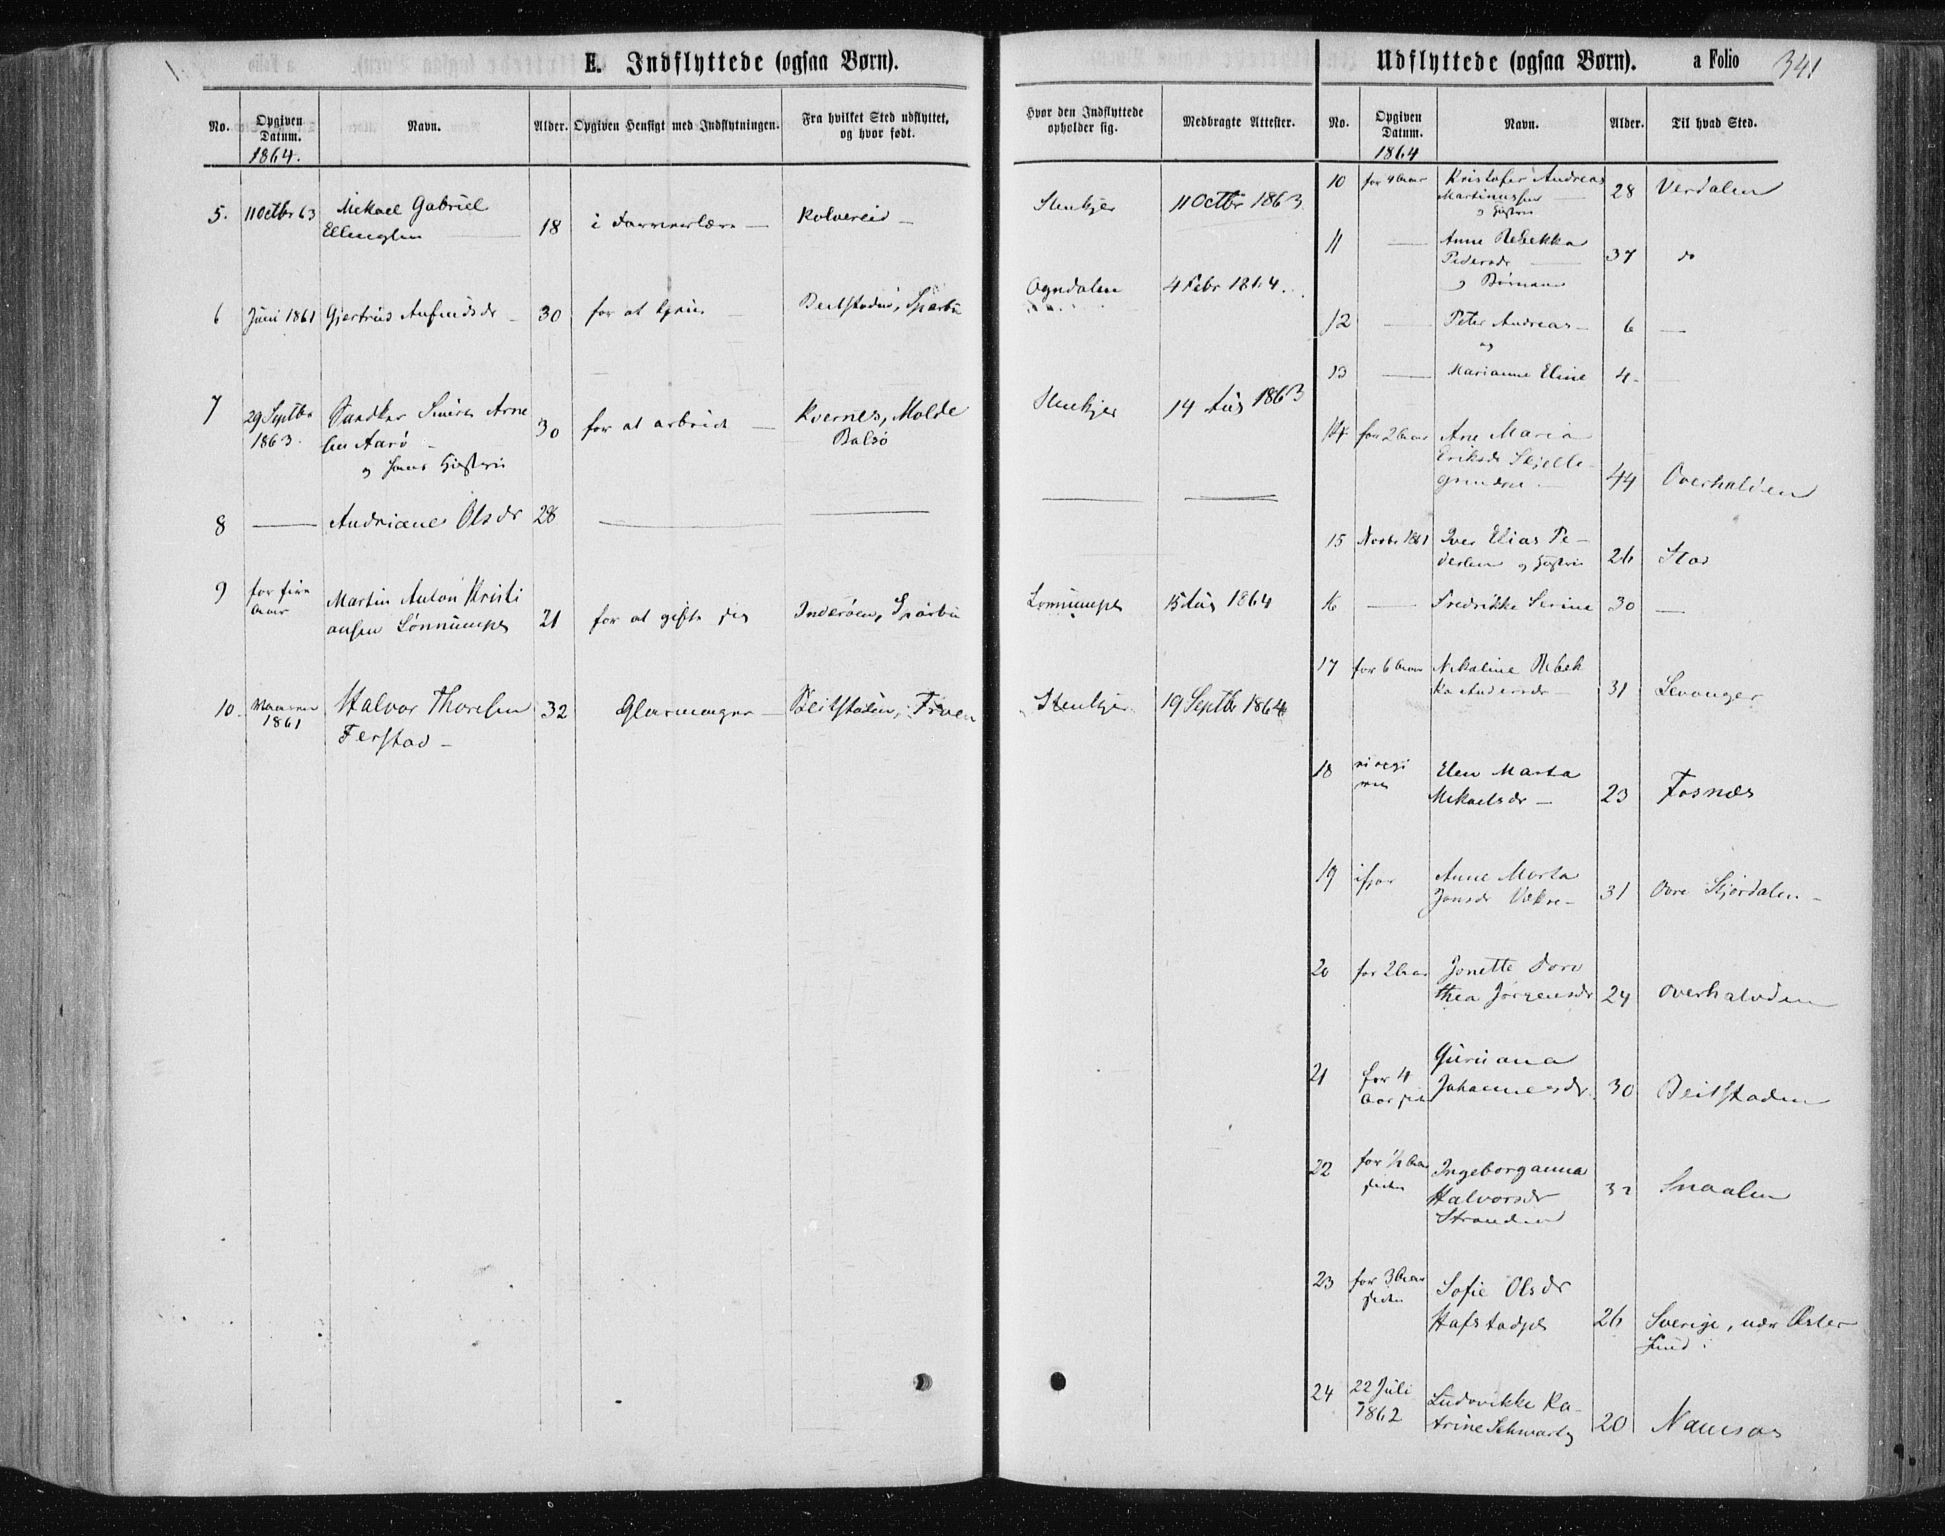 E. Indflyttede (ogsaa Børn).
No. Opgiven Datum. Navn. Alder. Opgiven Hensigt med Indflytningen. Fra hvilket Sted udflyttet, og hvor født.
Hvor den Indflyttede opholder sig. Medbragte Attester.
1864.
5. 11 Octbr 63 Mikael Gabriel
18 i Kolvereid — Stenkjer 11 Octbr 1863.
6 Juni 1861 Gjertrud Anfindsdr 30 for at tjene Beitstaden, Sparbu Ogndalen 4 Febr 1864.
7 29 Septbr 1863. Arne
Aarö — 30 for at arbeide — Kvernes, Molde
Bolsö Stenkjer 14 Aug 1863
og hans Hustru
8 — Andriane Olsdr 28
9 for fire Aar Martin Anton Kristi
ansen Lønnumps 21 for at gifte sig Inderøen, Sparbu Lønnumps 15 Aug 1864
10. 1861 Halvor Thoresen
Ferstad — 32 Glarmager — Beitstaden, Stenkjer 19 Septbr 1864
Udflyttede (ogsaa Børn). a Folio 341
No. Opgiven Datum. Navn. Alder. Til hvad Sted.
1864
10 for 4 Aar Kristofer Andreas
Martinussen —
og Hustru 28 Verdalen
11 — Anne Rebekka
Pedersdr — 37 do
og Børnene
12 — Peter Andreas — 6 —
og
13 — Marianne Eline 4 —
14 for 2 Aar Ane Maria
Eriksdr Skjelle-
44 Overhalden
15 Novbr 1861 Iver Elias Pe-
dersen og Hustru 26 Stod
16 — Fredrikke Serine 30 —
17 for 6 Aar Nikoline Rebek
ka Andersdr — 31 Levanger
18 Elen Marta
Mikaelsdr — 23 Fosnæs
19 ifjor Anne Marta
Jonsdr Vekre — 31 Øvre Stjørdalen —
20 for 2 Aar Jonette Doro
thea Jørgensdr 24 Overhalvden
21 for 4
Aar siden Guruana
Johannesdr. 30 Beitstaden
22 for ½ Aar
siden Ingeborganna
Halvorsdr
Stranden 32 Snaasen
23 for 3 Aar
siden Sofie Olsdr
Hafstadps 26 Sverige, nær Øster
sund.
24 22 Juli
1862 Ludovikke Ka-
trine Schwartz 20 Namsos